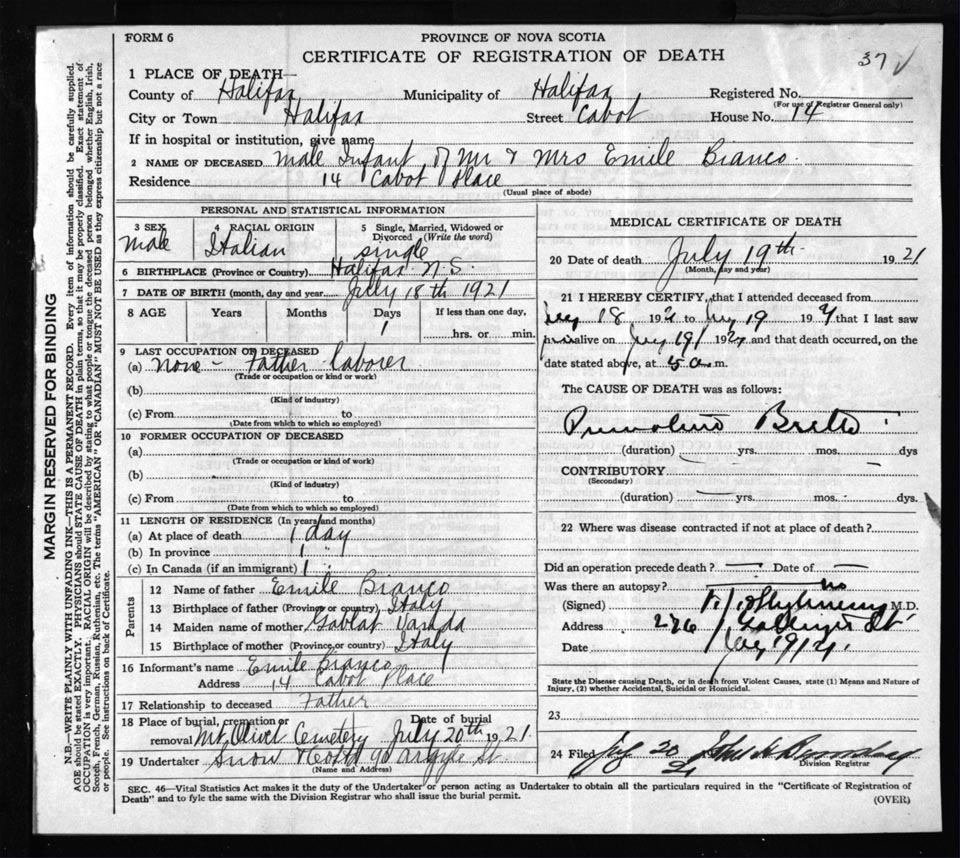 FORM 6
PROVINCE OF NOVA SCOTIA
CERTIFICATE OF REGISTRATION OF DEATH
37 ✓
1 PLACE OF DEATH—
County of Halifax Municipality of Halifax Registered No.
(For use of Registrar General only)
City or Town Halifax Street Cabot House No. 14
If in hospital or institution, give name
2 NAME OF DECEASED male Infant of Mr & Mrs Emile Bianco
Residence 14 Cabot Place
(Usual place of abode)
PERSONAL AND STATISTICAL INFORMATION
3 SEX male
4 RACIAL ORIGIN Italian
5 Single, Married, Widowed or Divorced (Write the word) single
6 BIRTHPLACE (Province or Country) Halifax N.S.
7 DATE OF BIRTH (month, day and year) July 18th 1921
8 AGE Years Months Days 1 If less than one day, hrs. or min.
9 LAST OCCUPATION OF DECEASED
(a) none – Father laborer
(Trade or occupation or kind of work)
(b)
(Kind of industry)
(c) From to
(Date from which to which so employed)
10 FORMER OCCUPATION OF DECEASED
(a)
(Trade or occupation or kind of work)
(b)
(Kind of industry)
(c) From to
(Date from which to which so employed)
11 LENGTH OF RESIDENCE (In years and months)
(a) At place of death 1 day
(b) In province 1 "
(c) In Canada (if an immigrant) 1 "
Parents
12 Name of father Emile Bianco
13 Birthplace of father (Province or country) Italy
14 Maiden name of mother
15 Birthplace of mother (Province or country) Italy
16 Informant's name Emile Bianco
Address 14 Cabot Place
17 Relationship to deceased Father
18 Place of burial, cremation or removal Mt Olivet Cemetery Date of burial July 20th 1921
19 Undertaker Snow 90 Argyle St
(Name and Address)
MEDICAL CERTIFICATE OF DEATH
20 Date of death July 19th 1921
(Month, day and year)
21 I HEREBY CERTIFY, that I attended deceased from
18 192 to 19 192 that I last saw
alive on 19 192 and that death occurred, on the
date stated above, at 5 a m.
The CAUSE OF DEATH was as follows:
(duration) yrs. mos. dys
CONTRIBUTORY
(Secondary)
(duration) yrs. mos. dys.
22 Where was disease contracted if not at place of death?
Did an operation precede death? — Date of —
Was there an autopsy? no
(Signed) M.D.
Address St
Date
State the Disease causing Death, or in death from Violent Causes, state (1) Means and Nature of Injury, (2) whether Accidental, Suicidal or Homicidal.
23
24 Filed July 20 21
Division Registrar
SEC. 46—Vital Statistics Act makes it the duty of the Undertaker or person acting as Undertaker to obtain all the particulars required in the "Certificate of Registration of Death" and to fyle the same with the Division Registrar who shall issue the burial permit.
(OVER)
MARGIN RESERVED FOR BINDING
N.B.—WRITE PLAINLY WITH UNFADING INK—THIS IS A PERMANENT RECORD. Every item of information should be carefully supplied.
AGE should be stated EXACTLY. PHYSICIANS should STATE CAUSE OF DEATH in plain terms, so that it may be properly classified. Exact statement of
OCCUPATION is very important. RACIAL ORIGIN will be described by stating to what people or tongue the deceased person belonged whether English, Irish,
Scotch, French, German, Russian, Ruthenian, etc. The terms "AMERICAN" OR "CANADIAN" MUST NOT BE USED as they express citizenship but not a race
or people. See instructions on back of Certificate.